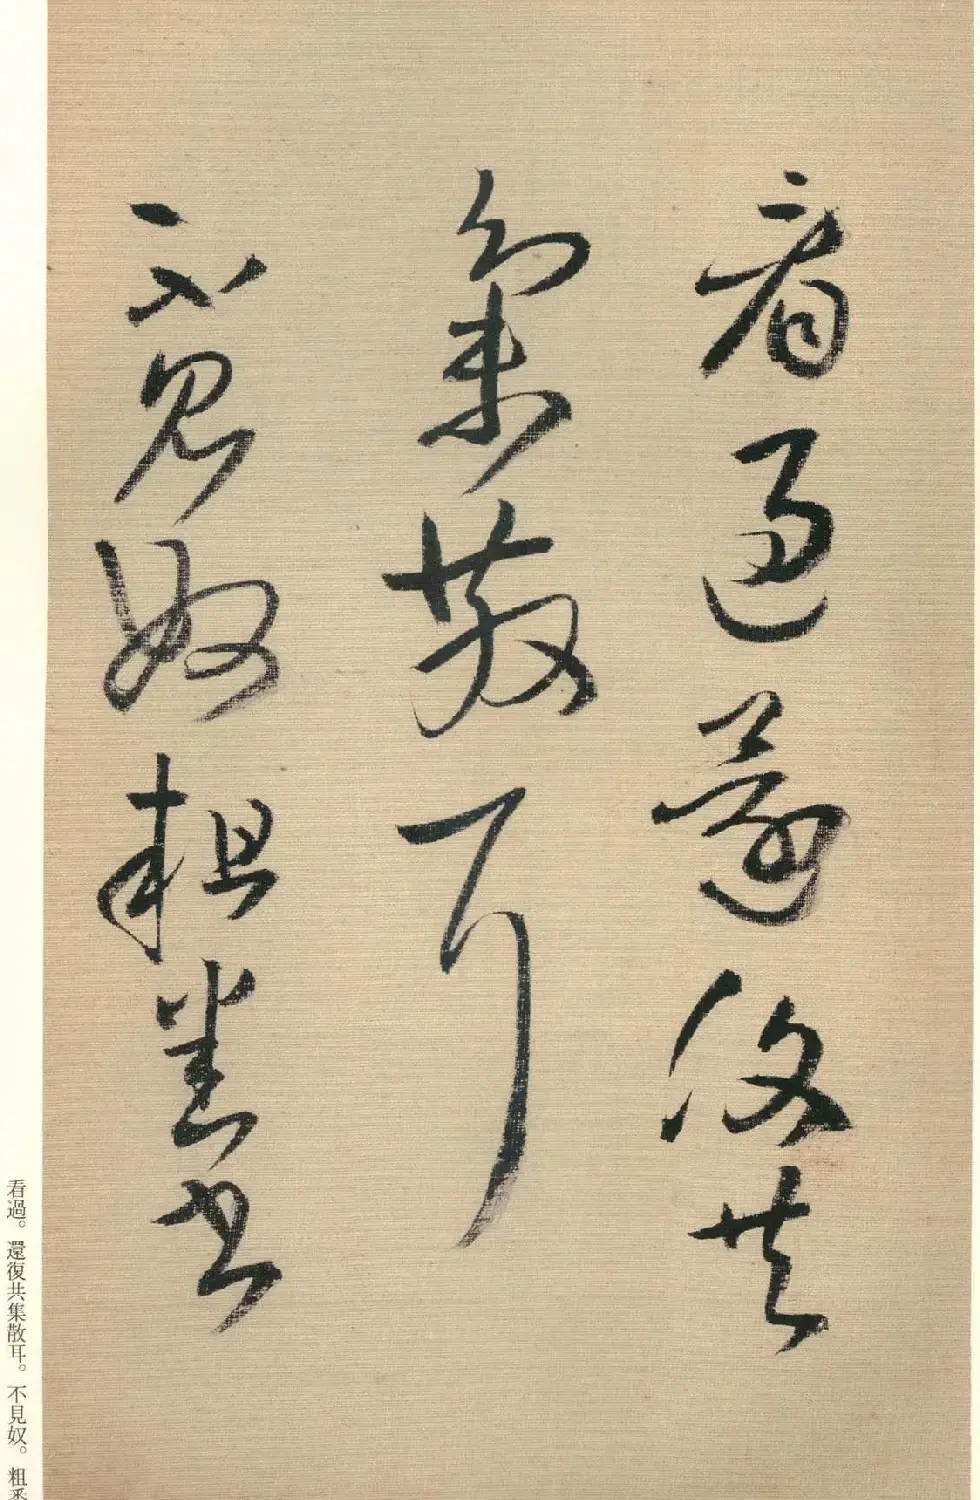 看過還復共
集散耳
不見奴粗悉書
看過。還復共集散耳。不見奴。粗悉